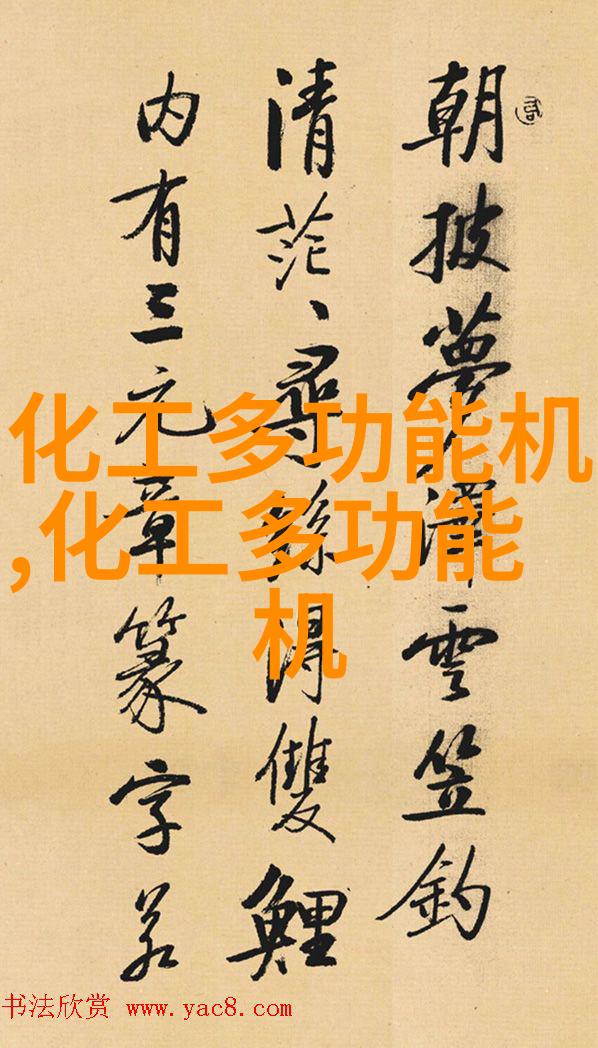 朝披夢澤雲笠釣
清茫、尋絲得雙鯉
内有三元章篆字若
化工多功能机
,化工多功能
机
书法欣赏 www.yac8.com